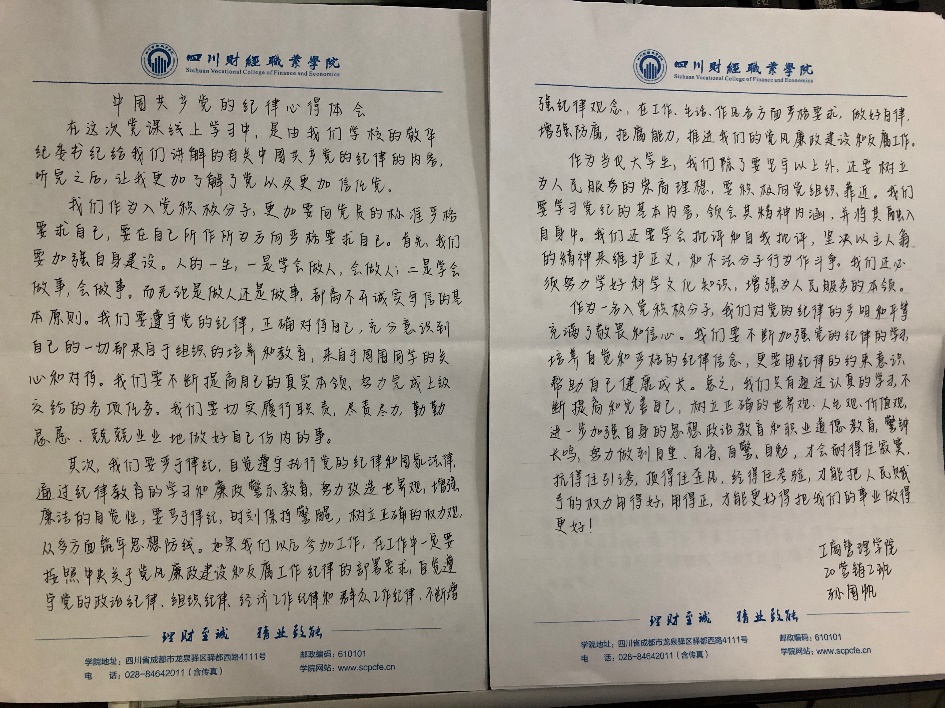 四川财经职业学院
Sichuan Vocational College of Finance and Economics
中国共产党的纪律心得体会
在这次党课线上学习中,是由我们学校的敬华
纪委书纪给我们讲解的有关中国共产党的纪律的内容,
听完之后,让我更加了解了党以及更加信任党。
我们作为入党积极分子,更加要向党员的标准严格
要求自己,要在自己所作所为方向严格要求自己。首先,我们
要加强自身建设。人的一生,一是学会做人,会做人;二是学会
做事,会做事。而无论是做人还是做事,都离不开诚实守信的基
本原则。我们要遵守党的纪律,正确对待自己,充分意识到
自己的一切都来自于组织的培养和教育,来自于周围同学的关
心和对待。我们要不断提高自己的真实本领,努力完成上级
交给的各项任务。我们要切实履行职责,尽责尽力,勤勤
恳恳、兢兢业业地做好自己份内的事。
其次,我们要严于律纪,自觉遵守执行党的纪律和国家法律,
通过纪律教育的学习和廉政警示教育,努力改造世界观,增强
廉洁的自觉性,要严于律纪,时刻保持警醒,树立正确的权力观,
从多方面筑牢思想防线。如果我们以后参加工作,在工作中一定要
按照中央关于党风廉政建设和反腐工作纪律的部署要求,自觉遵
守党的政治纪律、组织纪律、经济工作纪律和群众工作纪律,不断增
理财至诚 精业致能
学院地址:四川省成都市龙泉驿区驿都西路4111号 邮政编码:610101
电 话:028-84642011(含传真) 学院网站:www.scpcfe.cn
四川财经职业学院
Sichuan Vocational College of Finance and Economics
强纪律观念,在工作、生活、作风各方面严格要求,做好自律,
增强防腐,拒腐能力,推进我们的党风廉政建设和反腐工作。
作为当代大学生,我们除了要坚守以上外,还要树立
为人民服务的崇高理想,要积极向党组织靠近。我们
要学习党纪的基本内容,领会其精神内涵,并将其融入
自身中。我们还要学会批评和自我批评,坚决以主人翁
的精神来维护正义,和不法分子行为作斗争。我们还必
须努力学好科学文化知识,增强为人民服务的本领。
作为一名入党积极分子,我们对党的纪律的严明和平等
充满了敬畏和信心。我们要不断加强党的纪律的学习,
培养自觉和严格的纪律信念,更要用纪律的约束意识,
帮助自己健康成长。总之,我们只有通过认真的学习,不
断提高和完善自己,树立正确的世界观、人生观、价值观,
进一步加强自身的思想政治教育和职业道德教育,警钟
长鸣,努力做到自重、自省、自警、自勉,才会耐得住寂寞,
抗得住引诱,顶得住歪风,经得住考验,才能把人民赋
予的权力用得好,用得正,才能更好得把我们的事业做得
更好!
工商管理学院
20营销2班
孙国帆
理财至诚 精业致能
学院地址:四川省成都市龙泉驿区驿都西路4111号 邮政编码:610101
电 话:028-84642011(含传真) 学院网站:www.scpcfe.cn